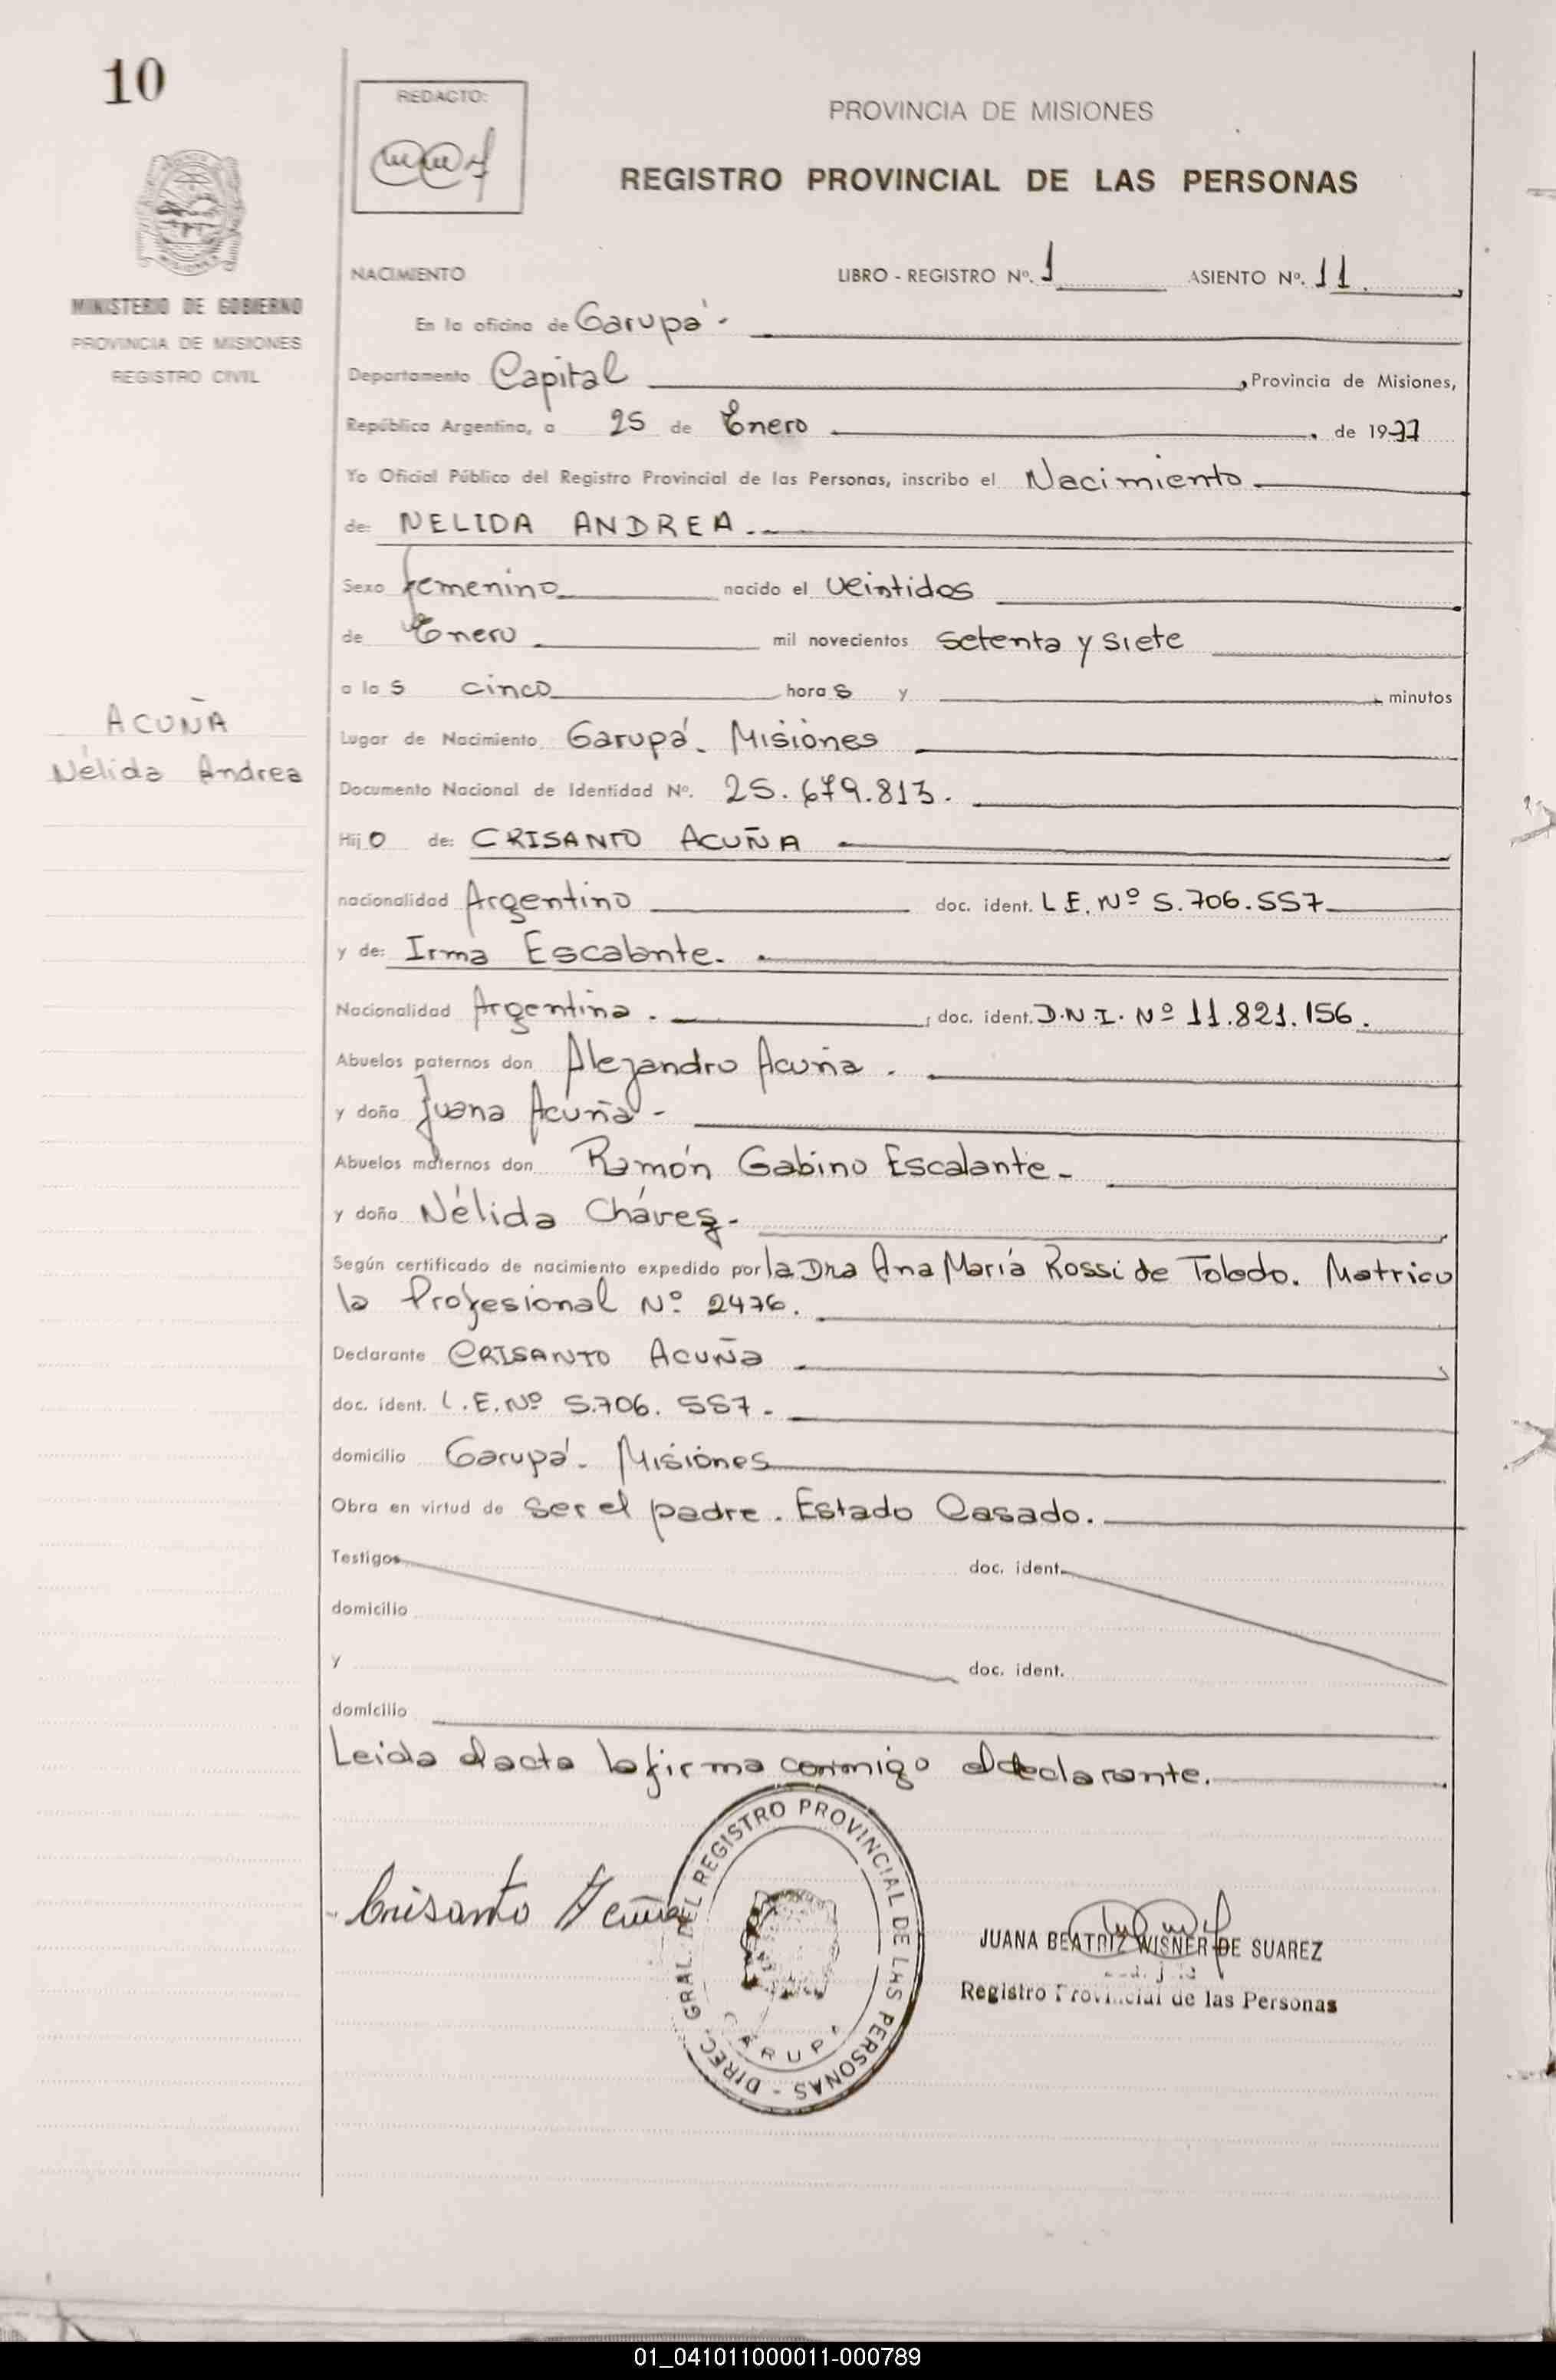 10
REDACTO:
PROVINCIA DE MISIONES
REGISTRO PROVINCIAL DE LAS PERSONAS
MINISTERIO DE GOBIERNO
PROVINCIA DE MISIONES
REGISTRO CIVIL
NACIMIENTO LIBRO - REGISTRO Nº. 1 ASIENTO Nº. 11.
En la oficina de Garupá -
Departamento Capital , Provincia de Misiones,
República Argentina, a 25 de Enero , de 1977
Yo Oficial Público del Registro Provincial de las Personas, inscribo el Nacimiento
de: NELIDA ANDREA.
Sexo femenino nacido el veintidos
de Enero mil novecientos setenta y siete
a la s cinco hora s y minutos
ACUÑA
Nélida Andrea
Lugar de Nacimiento Garupá. Misiones
Documento Nacional de Identidad Nº. 25.679.813.
Hij o de: CRISANTO ACUÑA
nacionalidad Argentino doc. ident. L E. Nº 5.706.557
y de: Irma Escalante.
Nacionalidad Argentina. , doc. ident. D.N.I. Nº 11.821.156.
Abuelos paternos don Alejandro Acuña.
y doña Juana Acuña -
Abuelos maternos don Ramón Gabino Escalante.
y doña Nélida Cháves.
Según certificado de nacimiento expedido por la Dra Ana María Rossi de Toledo. Matricu
la Profesional Nº 2476.
Declarante CRISANTO ACUÑA
doc. ident. L.E. Nº 5.706.557.
domicilio Garupá. Misiones
Obra en virtud de ser el padre. Estado Casado.
Testigos doc. ident.
domicilio
y doc. ident.
domicilio
Leida el acta la firma conmigo el declarante.
Crisanto Acuña
DIREC. GRAL. DEL REGISTRO PROVINCIAL DE LAS PERSONAS -
GARUPA
JUANA BEATRIZ WISNER DE SUAREZ
Registro Provincial de las Personas
01_041011000011-000789